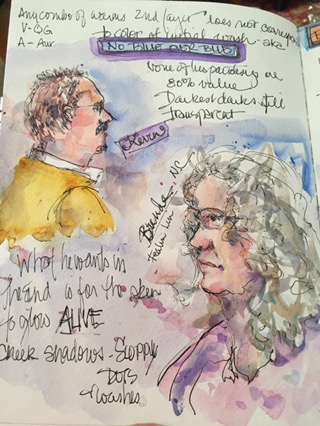 Any combo of warms 2nd layer does not correspond
V-OG to color of initial wash - aka
A - Aur NO BLUE OVER BLUE
None of his painting on
80% value
Darkest darks still
transparent
Kevin
Brenda
NC
What he wants in
the end is for the skin
to glow ALIVE
cheek shadows - Sloppy
DOTS
washes